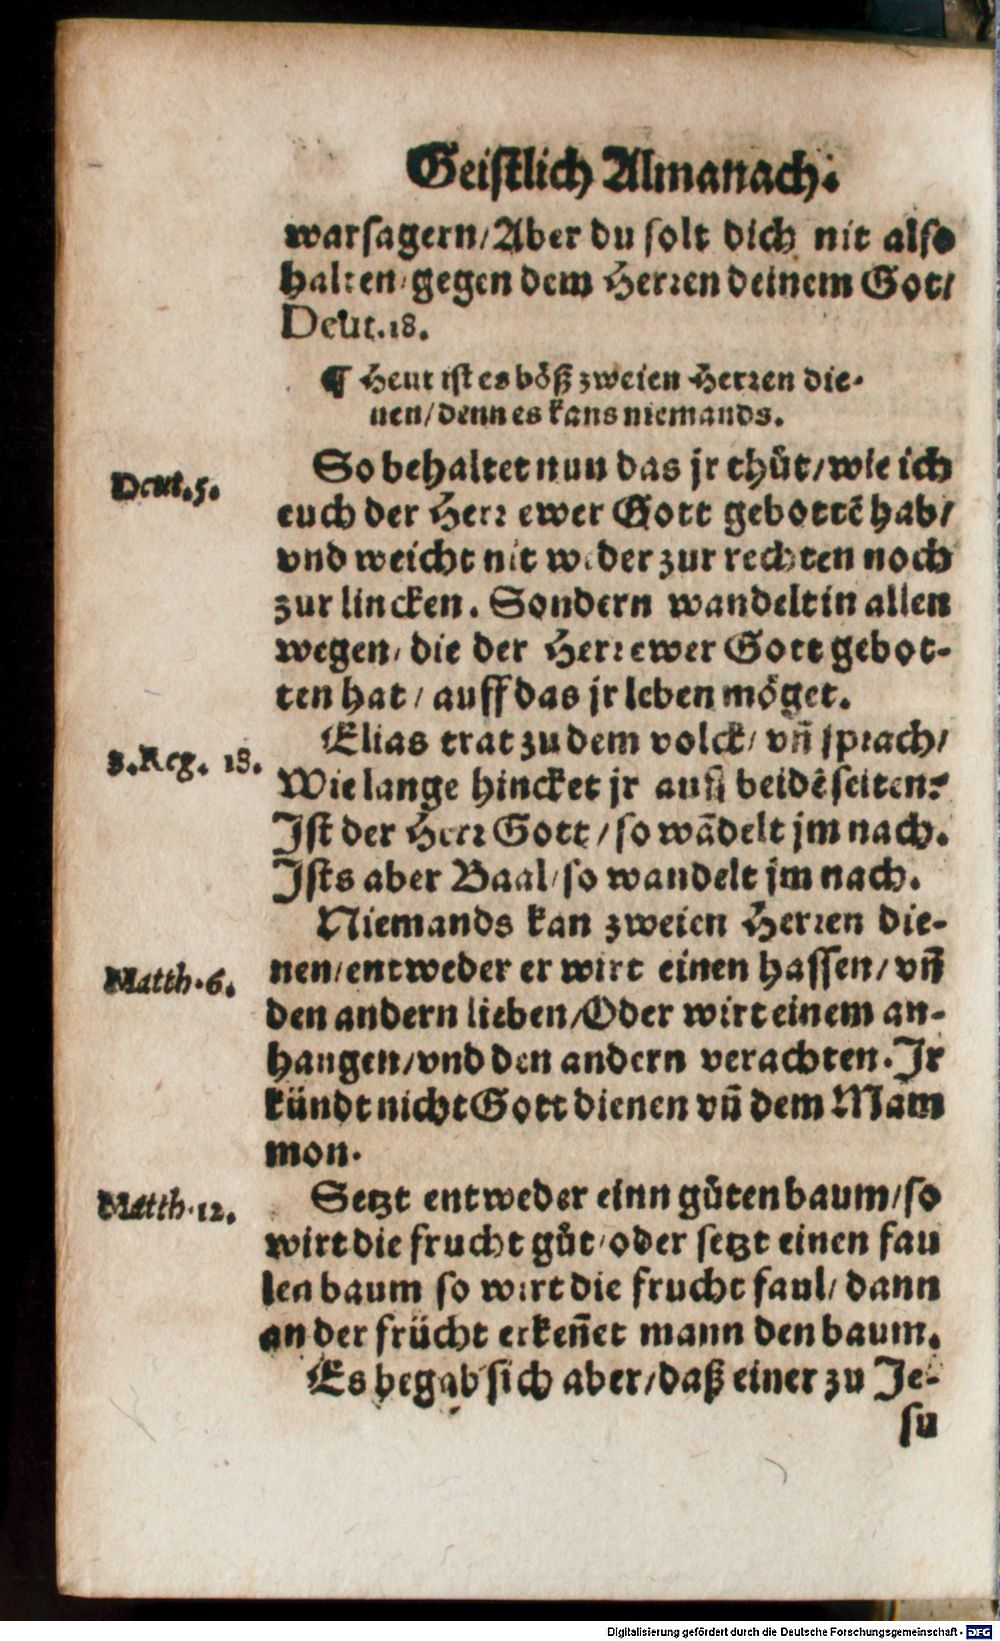 Geistlich Almanach.
warsagern/Aber du solt dich nit also
halten/gegen dem Herren deinem Got/
Deut.18.
¶ Heut ist es böß zweien Herren die-
nen/denn es kans niemands.
Deut.5.
So behaltet nun das jr thůt/wie ich
euch der Herr ewer Gott gebottē hab/
vnd weicht nit weder zur rechten noch
zur lincken. Sondern wandelt in allen
wegen/die der Herr ewer Gott gebot-
ten hat/auff das jr leben möget.
3.Reg. 18.
Elias trat zu dem volck/vñ sprach/
Wie lange hincket jr auff beidē seiten?
Ist der Herr Gott/so wādelt jm nach.
Ists aber Baal/so wandelt jm nach.
Niemands kan zweien Herren die-
Matth.6.
nen/entweder er wirt einen hassen/vñ
den andern lieben/Oder wirt einem an-
hangen/vnd den andern verachten.Ir
kündt nicht Gott dienen vñ dem Mam
mon.
Matth.12.
Setzt entweder einn gůten baum/so
wirt die frucht gůt/oder setzt einen fau
len baum so wirt die frucht faul/dann
an der frücht erkeñet mann den baum.
Es begab sich aber/daß einer zu Je-
su
Digitalisierung gefördert durch die Deutsche Forschungsgemeinschaft - DFG